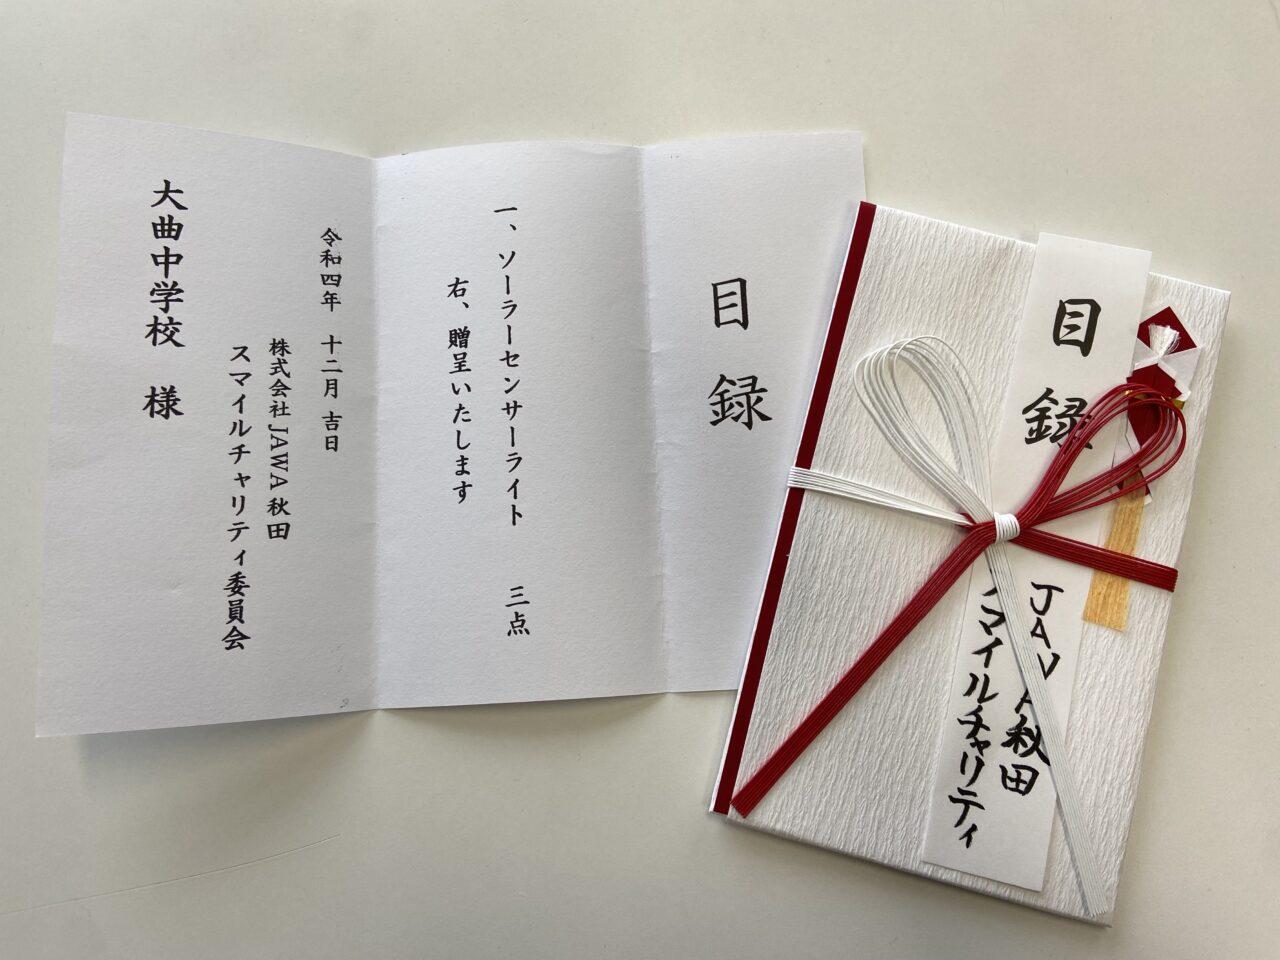 目録
一、ソーラーセンサーライト　三点
右、贈呈いたします
令和四年　十二月　吉日
株式会社JAWA秋田
スマイルチャリティ委員会
大曲中学校　様
目録
JAWA秋田
スマイルチャリティ